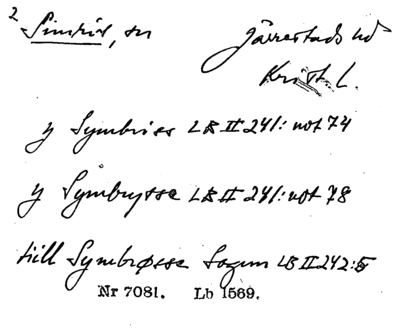 2 Simris, sn Järrestads hd
Krist. L.
y Symbriss LB II 241: not 74
y Symbrysse LB II 241: not 78
till Symbrøsse Sogum LB II 242:5
Nr 7081. Lb 1569.